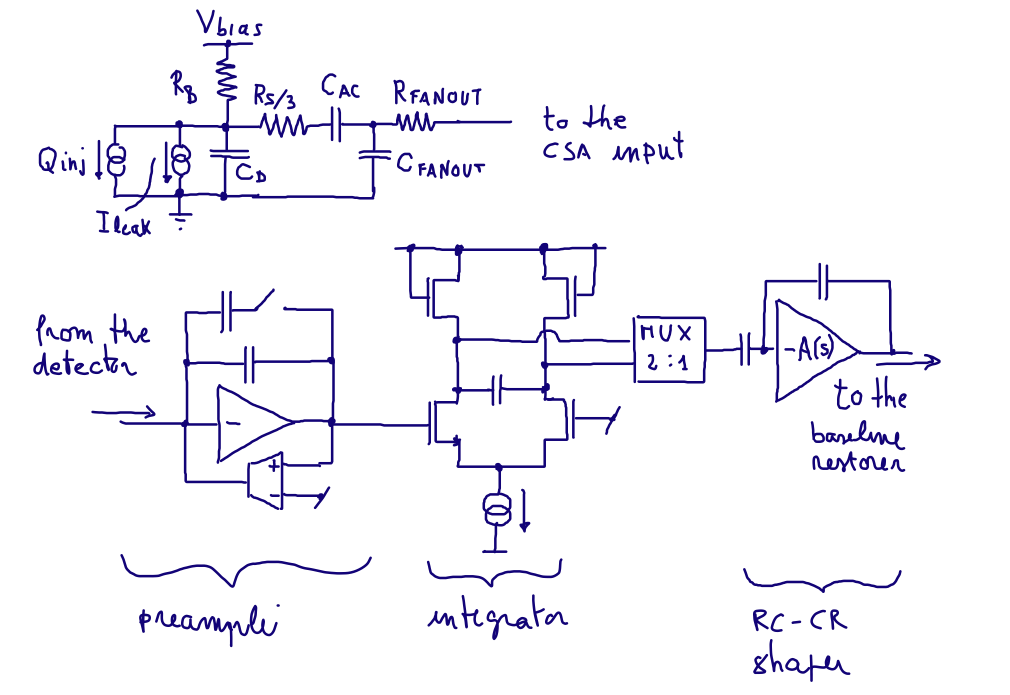 Vbias
RB
RS/3
CAC
RFANOUT
to the
CSA input
Qinj
CD
CFANOUT
Ileak
from the
detector
MUX
2:1
-A(s)
to the
baseline
restorer
-
+
-
preampli
integrator
RC-CR
shaper